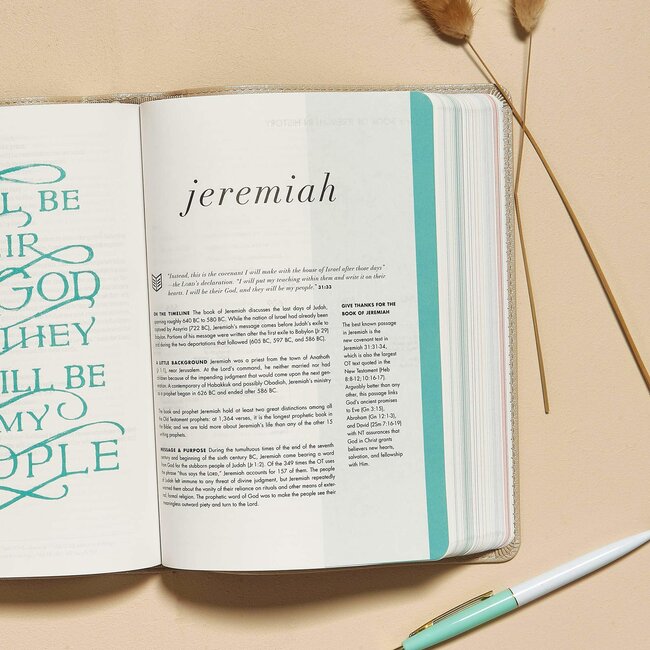 LL BE
EIR
GOD
THEY
ILL BE
MY
OPLE
jeremiah
"Instead, this is the covenant I will make with the house of Israel after those days"
—the LORD's declaration. "I will put my teaching within them and write it on their
hearts. I will be their God, and they will be my people." 31:33
ON THE TIMELINE The book of Jeremiah discusses the last days of Judah,
spanning roughly 640 BC to 580 BC. While the nation of Israel had already been
captured by Assyria (722 BC), Jeremiah's message comes before Judah's exile to
Babylon. Portions of his message were written after the first exile to Babylon (Jr 29)
and during the two departations that followed (605 BC, 597 BC, and 586 BC).
A LITTLE BACKGROUND Jeremiah was a priest from the town of Anathoth
(Jr 1:1), near Jerusalem. At the Lord's command, he neither married nor had
children because of the impending judgment that would come upon the next gen-
eration. A contemporary of Habakkuk and possibly Obadiah, Jeremiah's ministry
as a prophet began in 626 BC and ended after 586 BC.
The book and prophet Jeremiah hold at least two great distinctions among all
the Old Testament prophets: at 1,364 verses, it is the longest prophetic book in
the Bible; and we are told more about Jeremiah's life than any of the other 15
writing prophets.
MESSAGE & PURPOSE During the tumultuous times of the end of the seventh
century and beginning of the sixth century BC, Jeremiah came bearing a word
from God for the stubborn people of Judah (Jr 1:2). Of the 349 times the OT uses
the phrase "thus says the LORD," Jeremiah accounts for 157 of them. The people
of Judah felt immune to any threat of divine judgment, but Jeremiah repeatedly
warned them about the vanity of their reliance on rituals and other means of exter-
nal, formal religion. The prophetic word of God was to make the people see their
meaningless outward piety and turn to the Lord.
GIVE THANKS FOR THE
BOOK OF JEREMIAH
The best known passage
in Jeremiah is the
new covenant text in
Jeremiah 31:31-34,
which is also the largest
OT text quoted in the
New Testament (Heb
8:8-12; 10:16-17).
Arguably better than any
other, this passage links
God's ancient promises
to Eve (Gn 3:15),
Abraham (Gn 12:1-3),
and David (2Sm 7:16-19)
with NT assurances that
God in Christ grants
believers new hearts,
salvation, and fellowship
with Him.